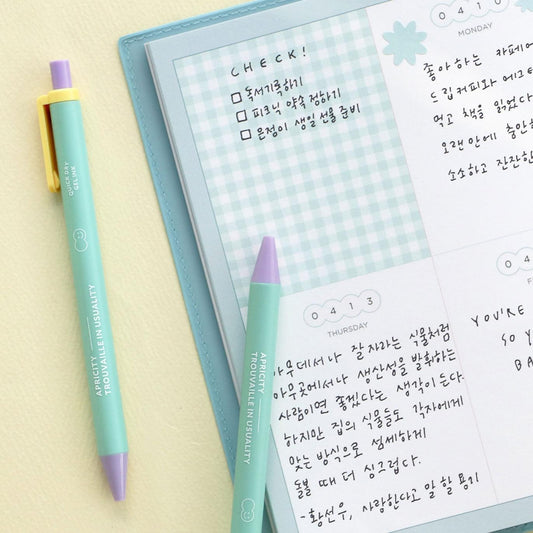 QUICK DAY
GEL INK
APRICITY
TROUVAILLE IN USUALITY
CHECK!
독서기록하기
피크닉 약속 정하기
은정이 생일 선물 준비
0410
MONDAY
좋아하는 카페에
드립커피와 에그
먹고 책을 읽었다
오랜만에 충만한
소소하고 잔잔한
0413
THURSDAY
아무데서나 잘 자라는 식물처럼
아무곳에서나 생산성을 발휘하는
사람이면 좋겠다는 생각이 든다.
하지만 집의 식물들도 각자에게
맞는 방식으로 섬세하게
돌볼 때 더 싱그럽다.
-황선우, 사랑한다고 말할 용기
0 4
F
YOU'RE
SO Y
BA
APRICITY
TROUVAILLE IN USUALITY